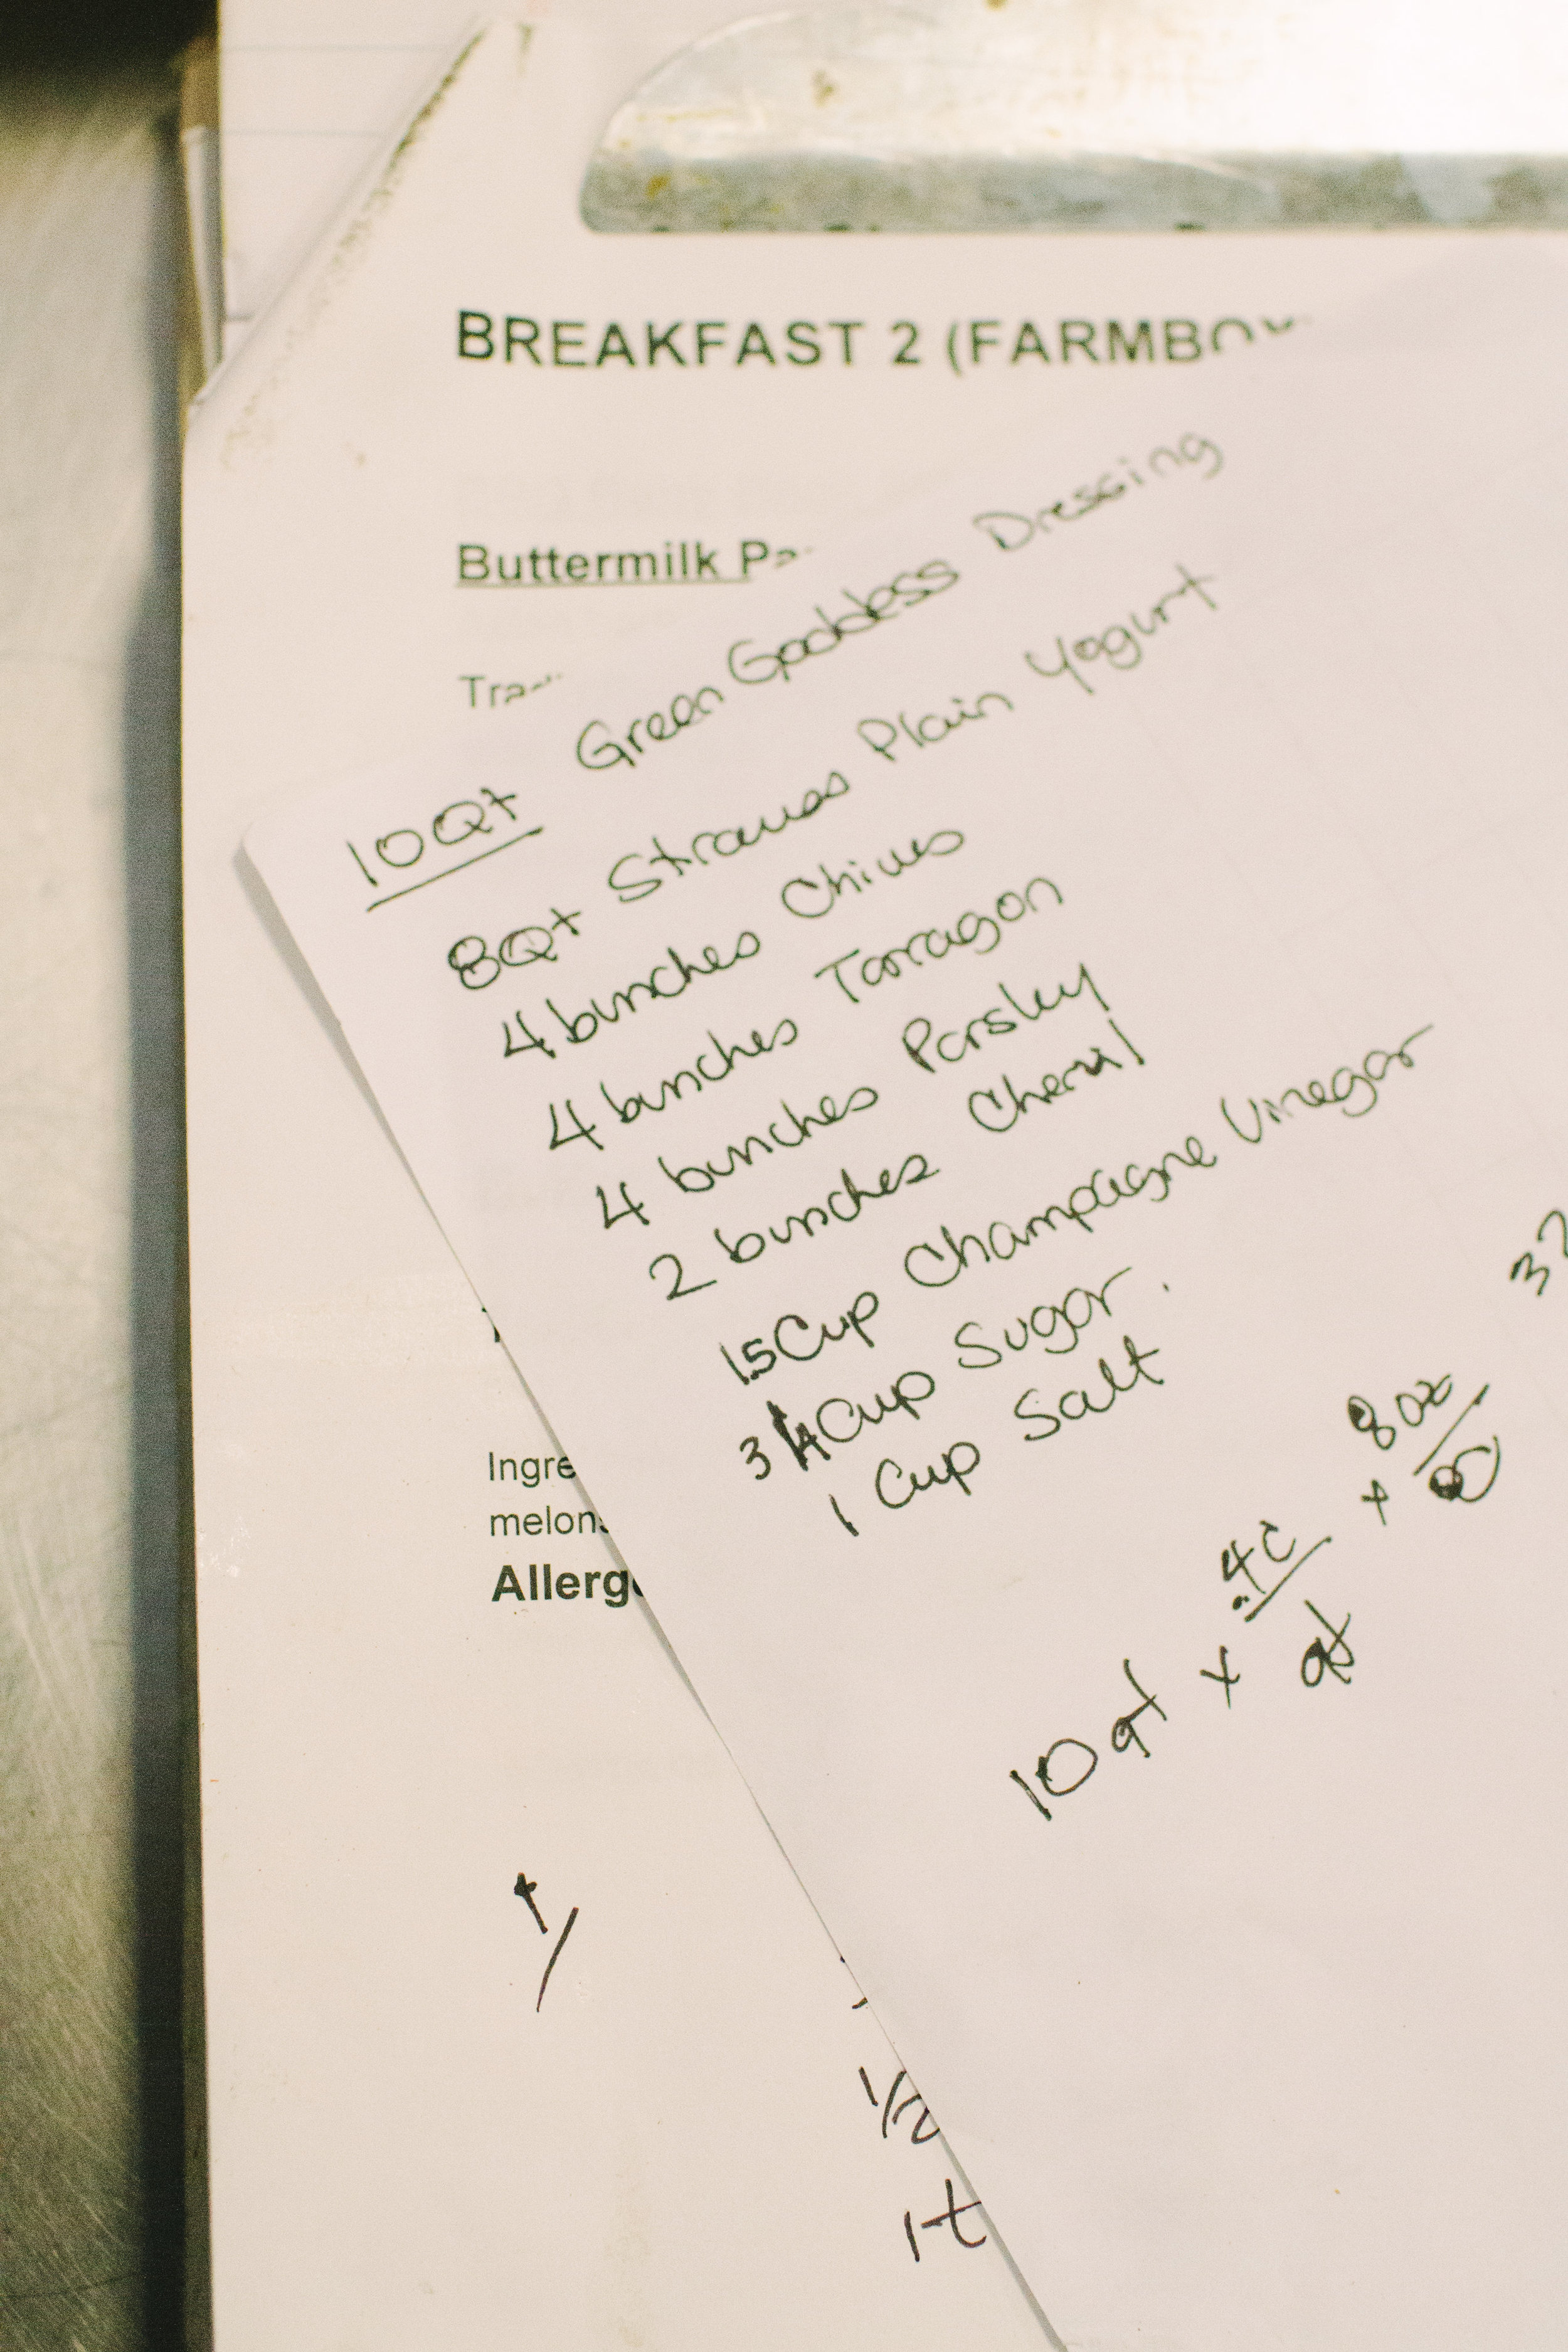 BREAKFAST 2 (FARMBOX
Buttermilk Pa
Tra
10Qt Green Goddess Dressing
8Qt Straus Plain Yogurt
4 bunches Chives
4 bunches Tarragon
4 bunches Parsley
2 bunches Chervil
1.5 Cup Champagne Vinegar
3/4 Cup Sugar.
1 Cup Salt
Ingre
melons
Allerge
10 qt x 4c/qt x 8oz/c
32
1/
1/2
1t